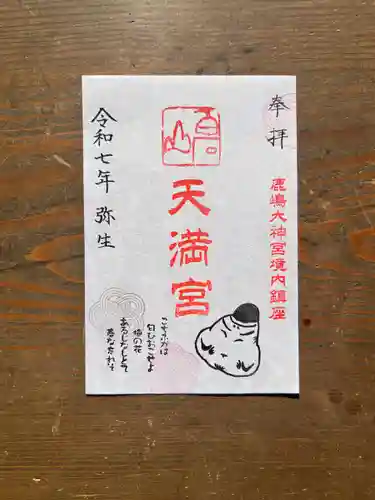 奉拝
鹿嶋大神宮境内鎮座
天満宮
令和七年 弥生
こちふかば
匂ひおこせよ
梅の花
あるじなしとて
春なわすれそ